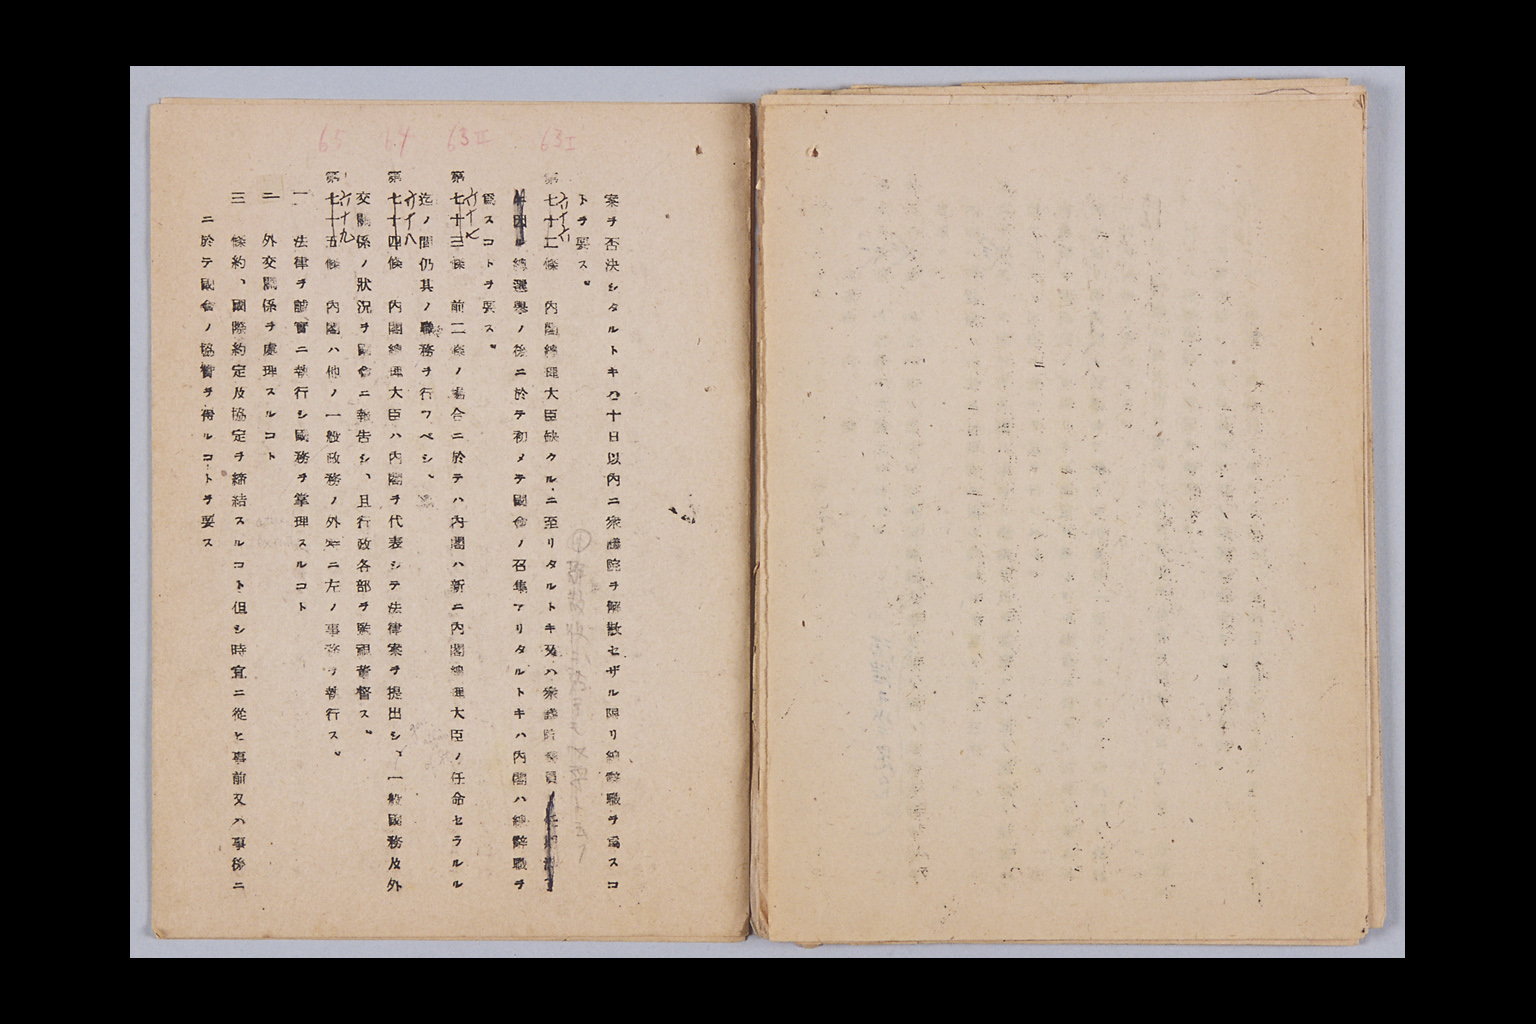 案ヲ否決シタルトキハ十日以内ニ衆議院ヲ解散セザル限リ總辭職ヲ爲スコ
トヲ要ス。
63 I
第七十二條　内閣總理大臣缺クルニ至リタルトキ又ハ衆議院議員ノ任期滿了
六十六
ニ因ル總選擧ノ後ニ於テ初メテ國會ノ召集アリタルトキハ内閣ハ總辭職ヲ
爲スコトヲ要ス。
63 II
第七十三條　前二條ノ場合ニ於テハ内閣ハ新ニ内閣總理大臣ノ任命セラルル
六十七
迄ノ間仍其ノ職務ヲ行フベシ。
64
第七十四條　内閣總理大臣ハ内閣ヲ代表シテ法律案ヲ提出シ、一般國務及外
六十八
交關係ノ狀況ヲ國會ニ報告シ、且行政各部ヲ監視董督ス。
65
第七十五條　内閣ハ他ノ一般政務ノ外特ニ左ノ事務ヲ執行ス。
六十九
一　法律ヲ誠實ニ執行シ國務ヲ掌理スルコト
二　外交關係ヲ處理スルコト
三　條約、國際約定及協定ヲ締結スルコト但シ時宜ニ從ヒ事前又ハ事後ニ
ニ於テ國會ノ協贊ヲ得ルコトヲ要ス